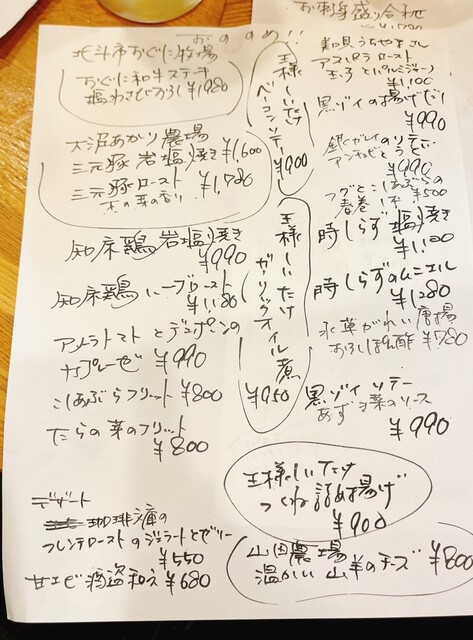 おすすめ!!
北斗市おぐに牧場
おぐに和牛ステーキ
塩わさびおろし ¥1980
大沼あかり農場
三元豚 岩塩焼き ¥1,600
三元豚ロースト
木の芽の香り ¥1,780
知床鶏岩塩焼き
¥990
知床鶏ハーブロースト
¥1,180
アメーラトマトとデコポンの
カプレーゼ ¥990
こしあぶらフリット ¥800
たらの芽のフリット
¥800
デザート
珈琲庵の
フレンチローストのジェラートとゼリー
¥550
甘エビ酒盗和え ¥680
王様しいたけ
ベーコンソテー
¥900
王様しいたけ
ガーリックオイル煮
¥950
お刺身盛り合わせ
アスパラロースト
¥1,100
黒ゾイの揚げだし
¥990
銀ガレイのソテー
¥990
フグとこしあぶらの
春巻1本 ¥500
時しらず塩焼き
¥1,100
時しらずのムニエル
¥1,280
水草がれい唐揚
おろしぽん酢 ¥780
黒ゾイソテー
¥990
王様しいたけ
つくね詰め揚げ
¥900
山田農場
温かい山羊のチーズ ¥800